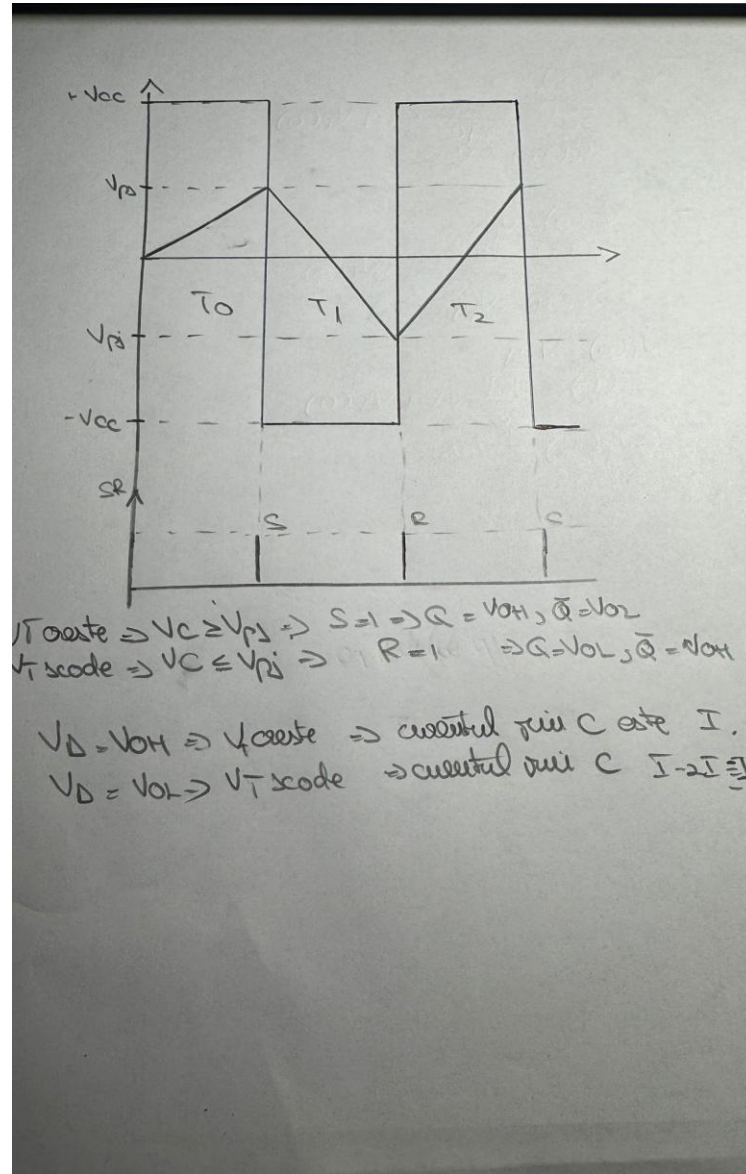 +Vcc
Vps
T0
T1
T2
Vpj
-Vcc
SR
S
R
S
VT creste => VC ≥ Vps => S=1 => Q = VOH, Q̄ = VOL
VT scade => VC ≤ Vpj => R=1 => Q=VOL, Q̄ = VOH
VD = VOH => VT creste => curentul prin C este I.
VD = VOL => VT scade => curentul prin C I-2I =